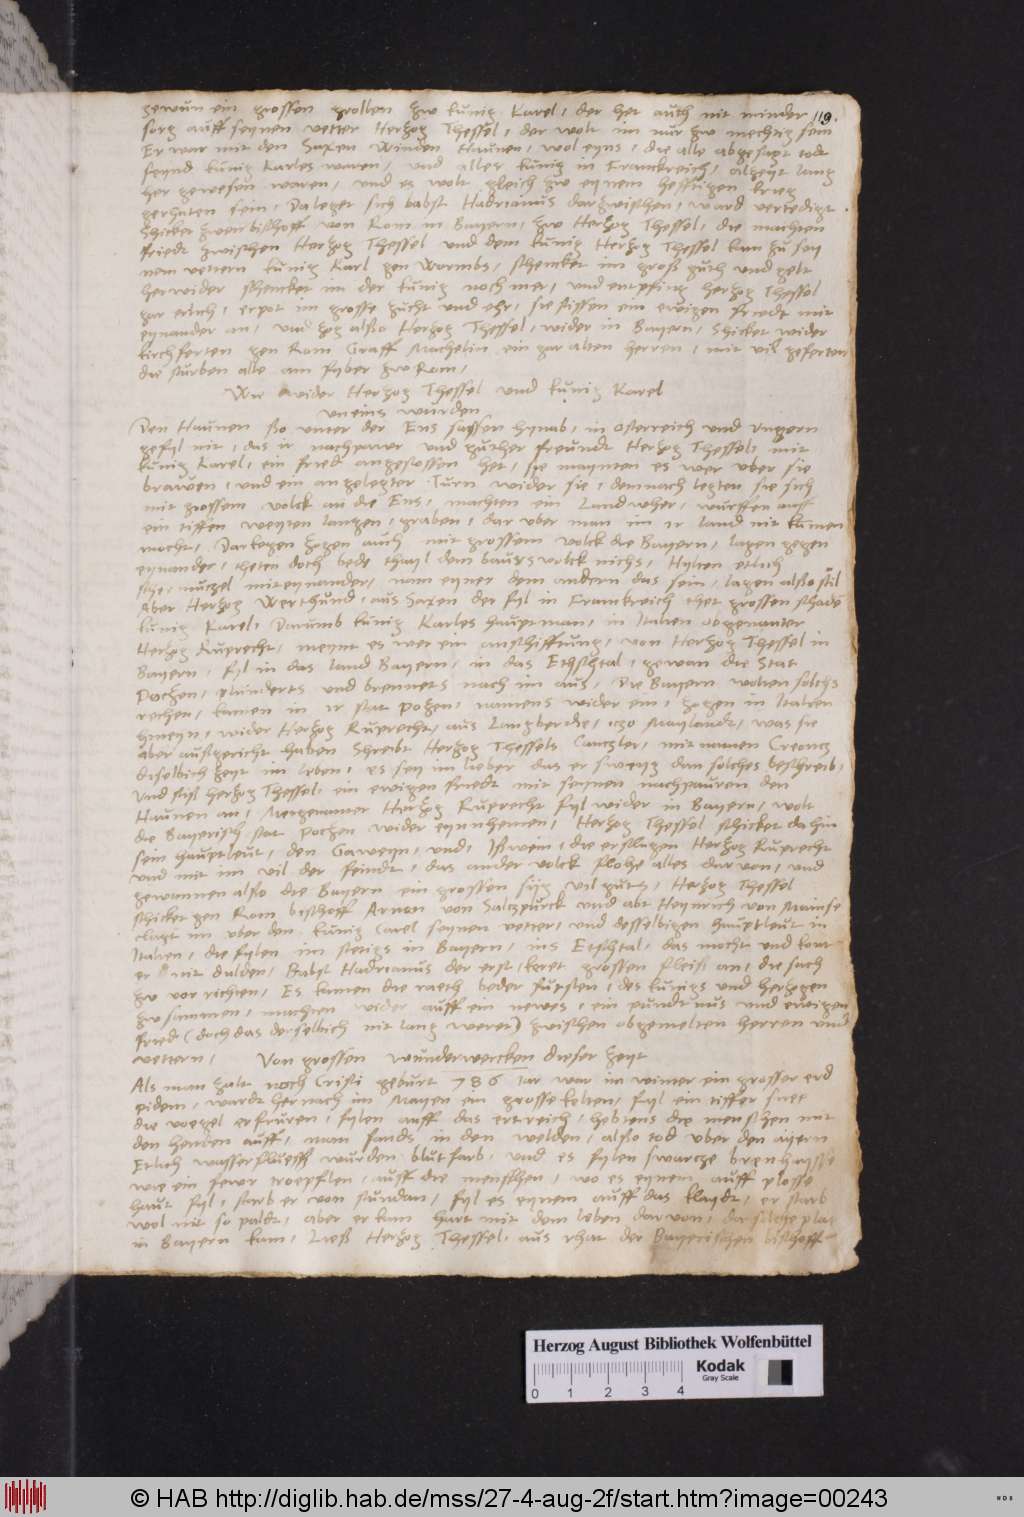 119.
gewun ein grossen grollen zw kunig Karel, der het auch nit minder
sorg auff seynen vetter Herzog Thessel, der wolt im nur zw mechtig sein
Er war mit den Saxen Winden Haunen, wol eyns, die alle abgesagt todt
feynd kunig Karles waren, und aller kunig in Franckreich, alzeyt lang
her gewesen waren, und es wolt gleich zw eynem hefftigen krieg
gerhaten sein, Da leget sich babst Hadrianus darzwischen, ward verteдigt
schicket zwen bischoff von Rom in Bayern, zw Herzog Thessel, die machten
friedt zwischen Herzog Thessel und dem kunig Herzog Thessel kam zu sey
nem vettern kunig Karl gen Wormbs, schencket im groß guth und gelt
herwider schencket im der kunig noch mer, und entpfing herzog Thessel
gar erlich, erpot im grosse zucht und ehr, sie stissen ein ewigen friedt mit
eynander an, und zog also Herzog Thessel, wider in Bayern, Schicket wider
kirchferten gen Rom Graff Machelin ein gar alten herren, mit vil geferten
die sturben alle am fyber zw Rom,
Wie wider Herzog Thessel und kunig Karel
uneins wurden
Den Haunen so unter der Ens sassen hynab, in osterreich und Ungern
gefyl nit, das ir nachpawr und guther freundt Herzog Thessel, mit
kunig Karel, ein fried angestossen het, sie maynten es wer uber sie
brawen, und ein angelegter Turn wider sie, demnach legten sie sich
mit grossem volck an die Ens, machten ein Landwher, wurffen auff
ein tiffen weyten langen, graben, dar uber man im ir land nit kumen
mocht, Darkegen zogen auch mit grossem volck die Bayern, lagen gegen
eynander, theten doch bede thayl dem baursvolck nichs, Hylten etlich
scharmuczel miteynander, nam eyner dem andern das sein, lagen also stil
Aber Herzog Werthund, aus Saxen der fyl in Franckreich thet grossen schadē
kunig Karel, Darumb kunig Karles hauptman, in Italien obgenanter
Herzog Ruprecht, meynt es wer ein anschifftung, von Herzog Thessel in
Bayern, fyl in das land Bayern, in das Ethschtal, gewan die Stat
Pochen, plunderts und brennets nach im aus, Die Bayern wolten solchs
rechen, kamen in ir stat Pozen, namens wider ein, zogen in Italien
hineyn, wider Herzog Ruprecht, aus Langberdie, izo Maylandt, was sie
aber außgericht haben Schreibt Herzog Thessels Canczler, mit namen Creoncz
diselbich zeyt im leben, es sey im lieber das er sweyg dan solches beschreib,
Und stist herzog Thessel, ein ewigen friedt mit seynen nachpauren den
Haunen an, Mergenanter Herzog Ruprecht fyl wider in Bayern, wolt
die Bayerisch stat Pochen wider eynnhemen, Herzog Thessel schicket dahin
sein hauptleut, den Gaweyn, und, Istwein, die erslugen Herzog Ruprecht
und mit im vil der feindt, das ander volck flohe alles darvon, und
gewannen also die Bayern ein grossen syg vil guts, Herzog Thessel
schicket gen Rom bischoff Arnon von Salczpurck und abt Heynrich von Mainse
clagt im uber den kunig Carel seynen vetter, und desselbigen hauptleut in
Italien, die fylen im stetigs in Bayern, ins Etschtal, das mocht und kont
er nit dulden, Babst Hadrianus der erst, keret grossen fleis an, die sach
zw vorrichten, Es kamen die raeth beder fursten, des kunigs und herzogen
zwsammen, machten wider auff ein newes, ein pundtnus und ewigen
fried (doch das derselbich nit lang weret) zwischen obgemelten herren und
vettern, Von grossen wunderwercken dieser zeyt
Als man zalt noch Cristi geburt 786 Iar war im winter ein grosser erd
pidem, wardt hernach im Mayen ein grosse kelten, fyl ein tiffer snee
die voegel erfruren, fylen auff das ertreich, hebtens die menschen mit
den henden auff, man fands in den welden, also tod uber den ayern
Etlich wasserfluesß wurden blutfarb, und es fylen swarcze brenhaysse
wie ein fewr troepflen, auff die menschen, wo es eynem auff plosse
haut fyl, starb er von stundan, fyl es eynem auff das klaydt, er starb
wol nit so paldt, aber er kam hart mit dem leben darvon, da solche plag
in Bayern kam, Ließ Herzog Thessel, aus rhat der Bayerischen bischoff
Herzog August Bibliothek Wolfenbüttel
Kodak
Gray Scale
0 1 2 3 4
© HAB http://diglib.hab.de/mss/27-4-aug-2f/start.htm?image=00243